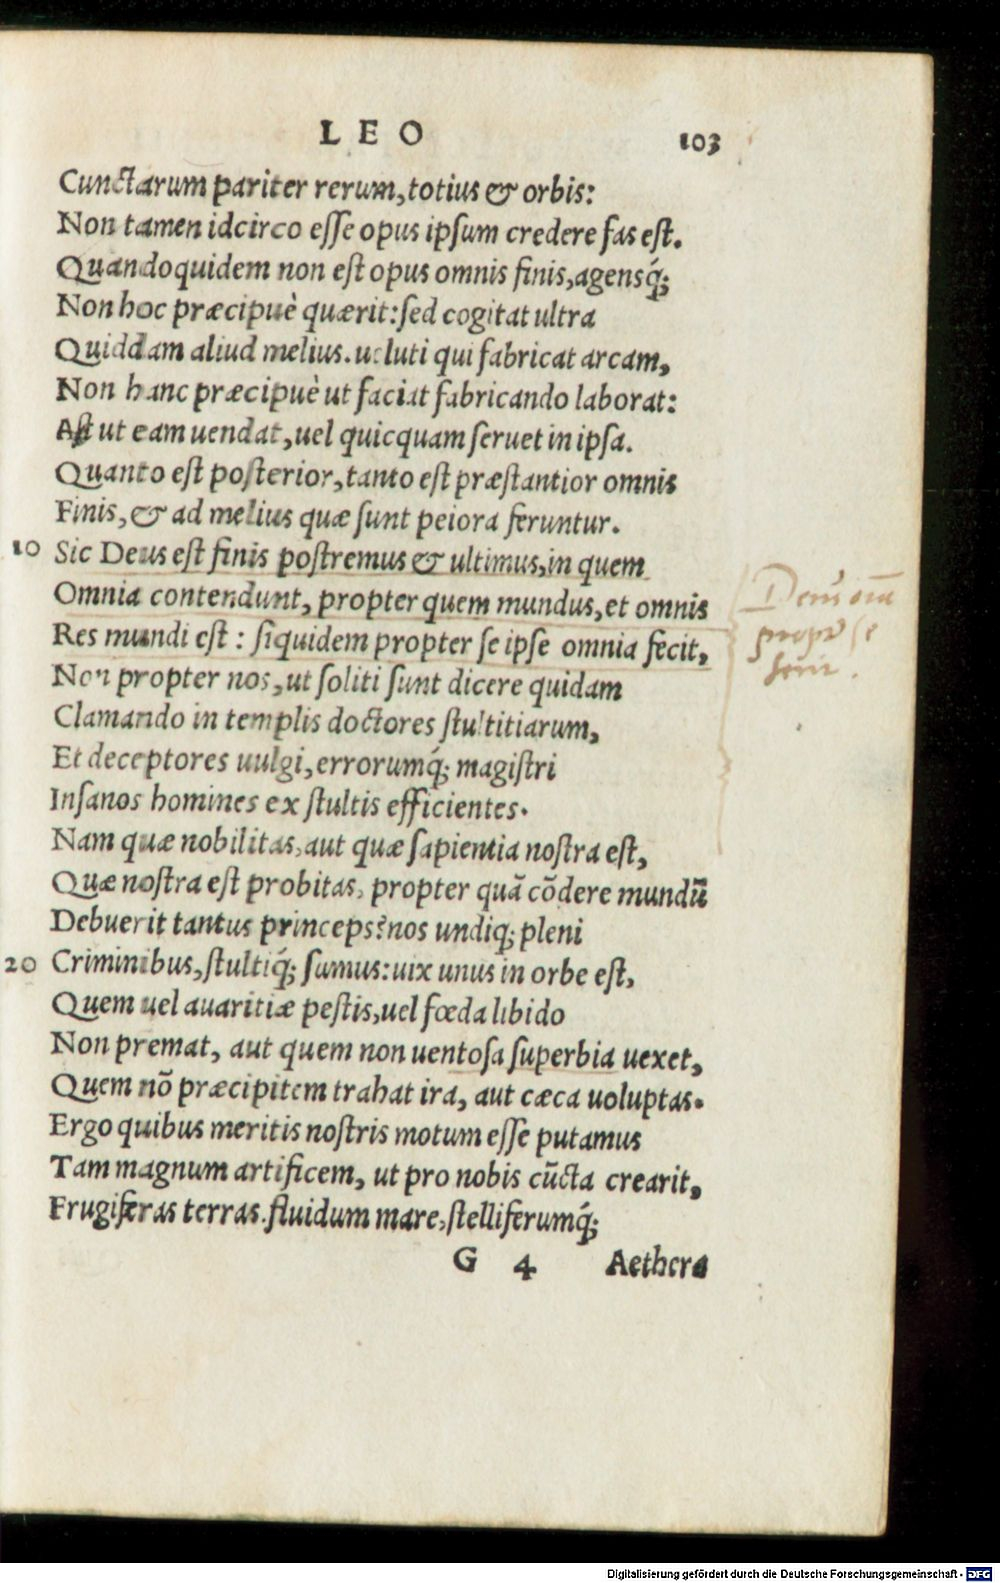 LEO 103
Cunctarum pariter rerum, totius & orbis:
Non tamen idcirco esse opus ipsum credere fas est.
Quandoquidem non est opus omnis finis, agensq́;
Non hoc præcipuè quærit: sed cogitat ultra
Quiddam aliud melius. ueluti qui fabricat arcam,
Non hanc præcipuè ut faciat fabricando laborat:
Ast ut eam uendat, uel quicquam seruet in ipsa.
Quanto est posterior, tanto est præstantior omnis
Finis, & ad melius quæ sunt peiora feruntur.
10 Sic Deus est finis postremus & ultimus, in quem
Omnia contendunt, propter quem mundus, et omnis
Res mundi est: siquidem propter se ipse omnia fecit,
Non propter nos, ut soliti sunt dicere quidam
Clamando in templis doctores stultitiarum,
Et deceptores uulgi, errorumq́; magistri
Insanos homines ex stultis efficientes.
Nam quæ nobilitas, aut quæ sapientia nostra est,
Quæ nostra est probitas, propter quã cõdere mundũ
Debuerit tantus princeps? nos undiq; pleni
20 Criminibus, stultiq́; sumus: uix unus in orbe est,
Quem uel auaritiæ pestis, uel fœda libido
Non premat, aut quem non uentosa superbia uexet,
Quem nõ præcipitem trahat ira, aut cæca uoluptas.
Ergo quibus meritis nostris motum esse putamus
Tam magnum artificem, ut pro nobis cũcta crearit,
Frugiferas terras. fluidum mare, stelliferumq́;
G 4 Aethera
Deus
se
Digitalisierung gefördert durch die Deutsche Forschungsgemeinschaft - DFG